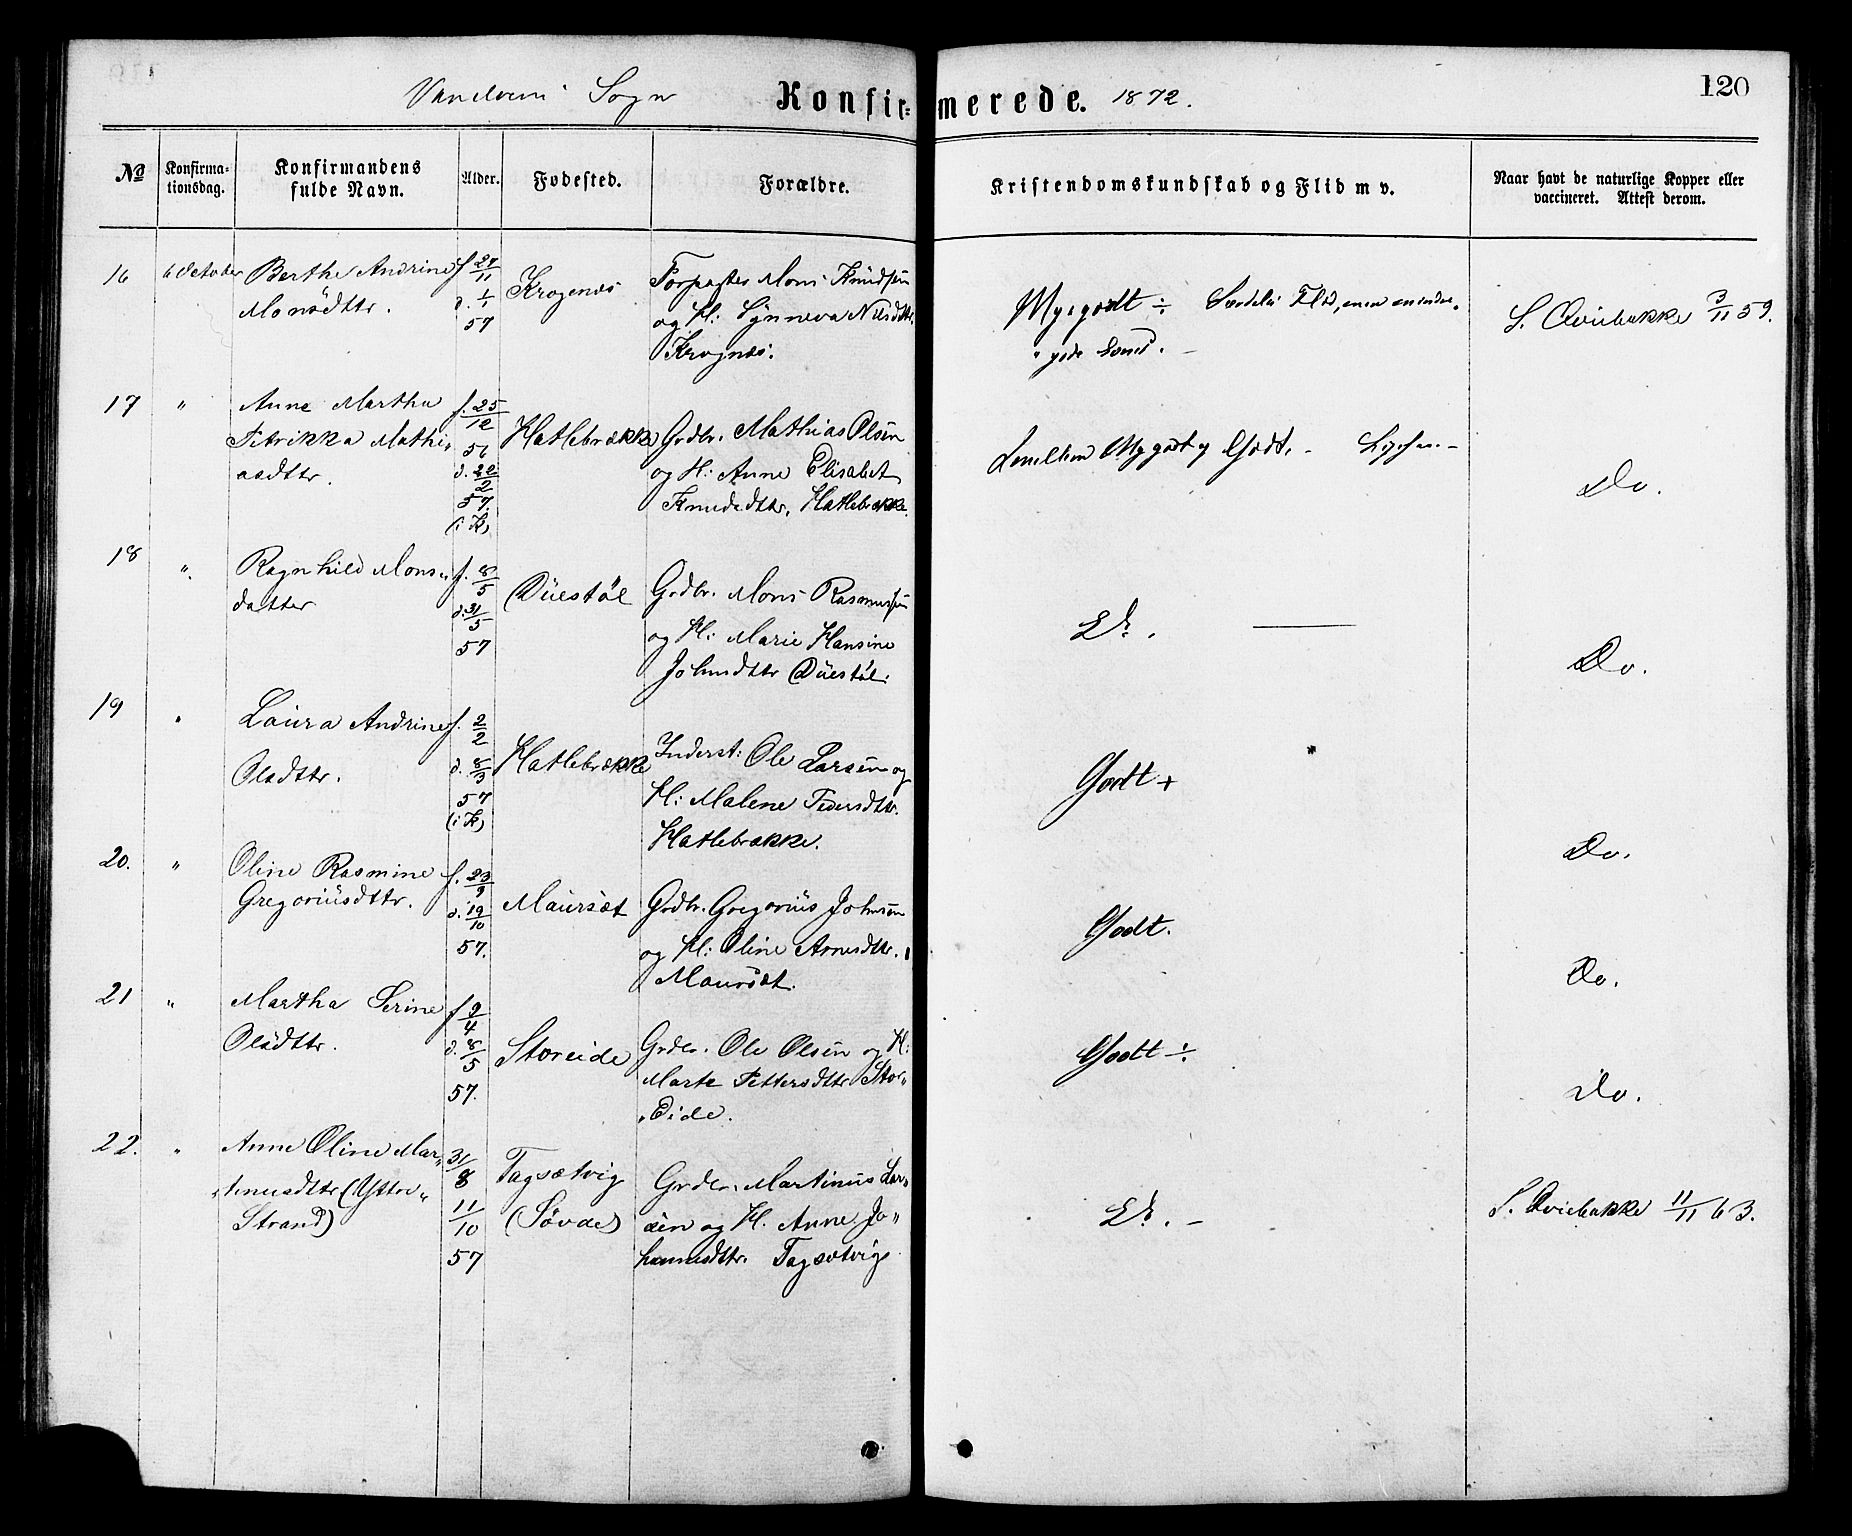 120
Sogn
Konfir= merede. 1872.
№
Konfirma=
tionsdag.
Konfirmandens
fulde Navn.
Alder.
Fodested.
Forældre.
Kristendomskundskab og Flid m v.
Naar havt de naturlige Kopper eller
vaccineret. Attest derom.
16 6 October Berthe Andrine f. 27/11
Monsdttr. d. 1/1
57
Krogenæs
Forpagter Mons Knudsen
og H: Synneva Nilsdttr.
Krognæs.
Mgegodt ÷ Særdeles Flid, men mindre
gode Evner.
S. Qviebakke 3/11 59.
17 " Anne Martha f. 25/12
Petrikka Mathi„ 56
asdttr. d. 22/2
57.
(i K)
Hatlebrække
Grdbr. Mathias Olsen
og H: Anne Elisabet
Knudsdttr. Hatlebrække.
Imellem Mggodt og Godt. –
Do.
18 ". Ragnhild Mons„ f. 8/5
datter d. 31/5
57
Düestøl
Grdbr. Mons Rasmussen
og H: Marie Hansine
Johnsdttr Düestøl.
Do.
Do.
19 " Laura Andrine f. 2/2
Olsdttr. d. 8/3
57
(i K)
Hatlebrække
Inderst: Ole Larsen og
H: Malene Pedersdttr.
Hatlebrække.
Godt +
Do.
20. " Oline Rasmine f. 23/9
Gregoriusdttr. d. 19/10
57.
Maursæt
Grdbr. Gregorius Johnsen
og H: Oline Arnesdttr.
Maursæt.
Godt.
Do.
21 " Martha Serine f 9/4
Olsdttr. d. 8/5
57.
Storeide
Grdbr. Ole Olsen og H:
Marte Pettersdttr Stor„
„Eide.
Godt ÷
Do.
22. " Anne Oline Mar„ 31/8
„tinusdttr (Yttre„ 11/10
Strand) 57
Tagsætvig
(Søvde)
Grdbr. Martinus Lar„
sen og H. Anne Jo„
hannesdttr. Tagsætvig
Do. –
S. Qviebakke 11/11 63.